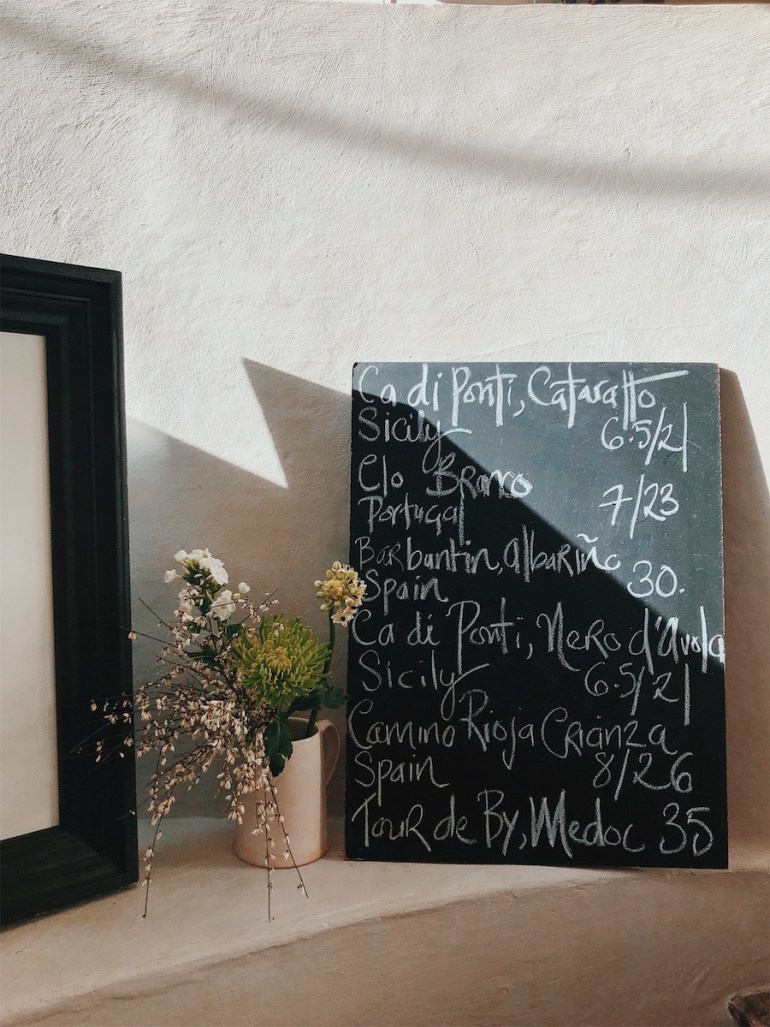 Ca di Ponti, Cataratto
Sicily 6.5/21
Clo Branco
Portugal 7/23
Barbantin, Albariño
Spain 30.
Ca di Ponti, Nero d'Avola
Sicily 6.5/21
Camino Rioja Crianza
Spain 8/26
Tour de By, Medoc 35